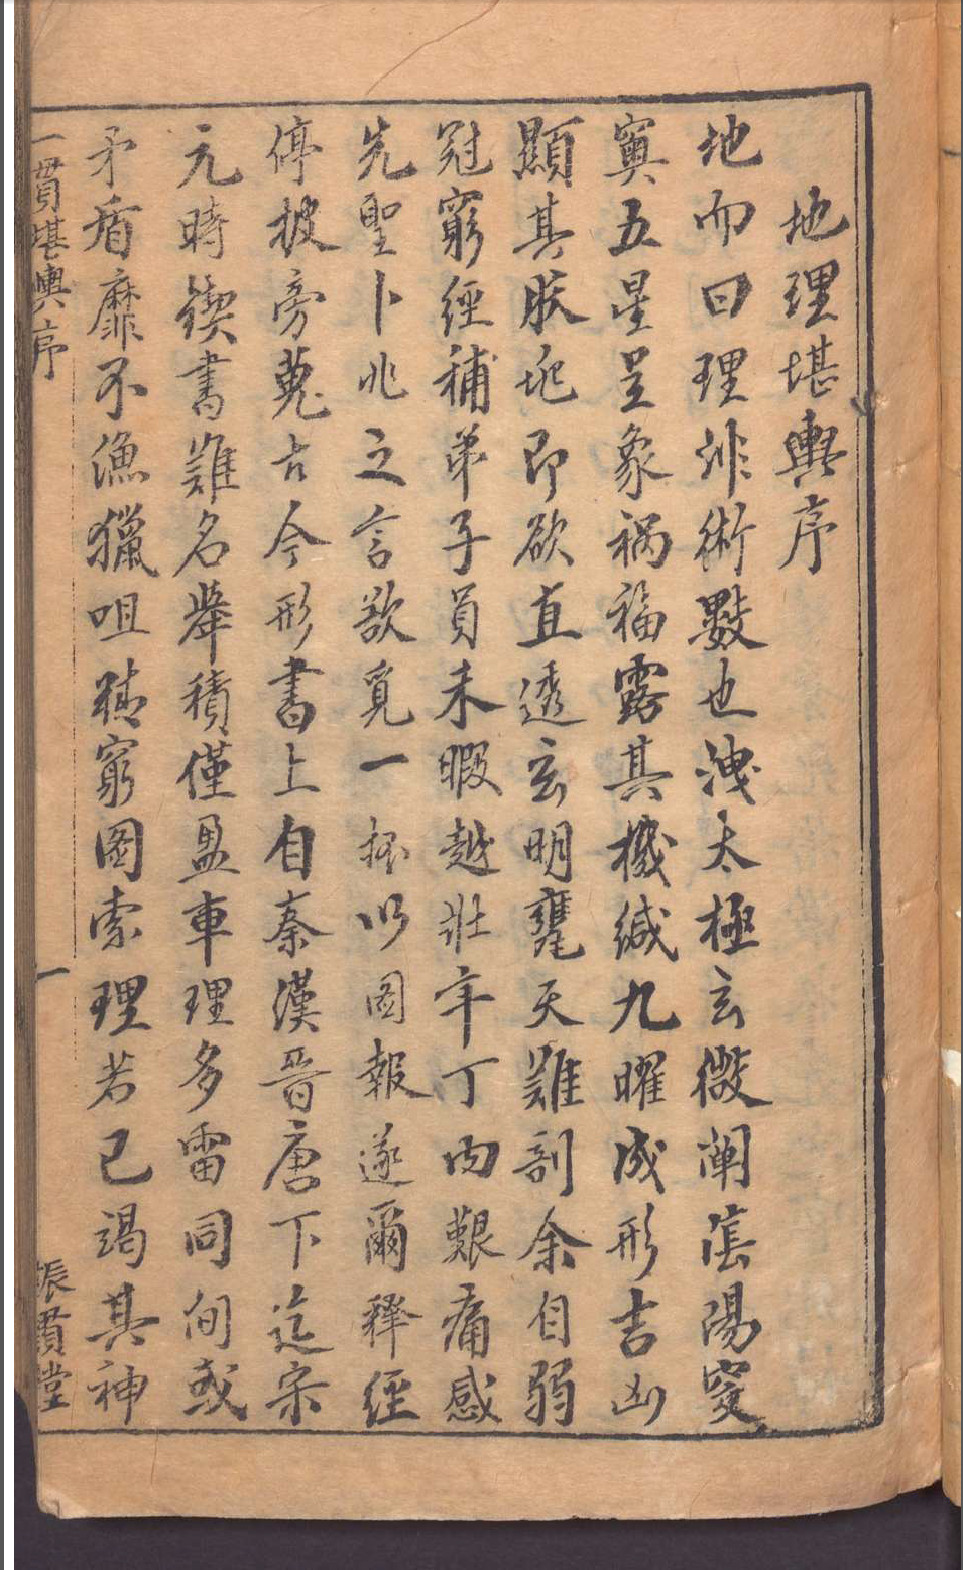 地理堪輿序
地而曰理非術數也洩太極玄微闡陰陽窔
窴五星呈象禍福露其機緘九曜成形吉凶
顯其朕兆即欲直透玄明甕天難剖余自弱
冠窮經補弟子員未暇越壯年丁內艱痛感
先聖卜兆之言欲覓一抔以圖報遂爾釋經
停披旁蒐古今形書上自秦漢晋唐下迄宋
元時鍥書難名舉積僅盈車理多雷同间或
矛盾靡不漁獵咀穗窮圖索理若已竭其神
一貫堪輿序
一
振貫堂